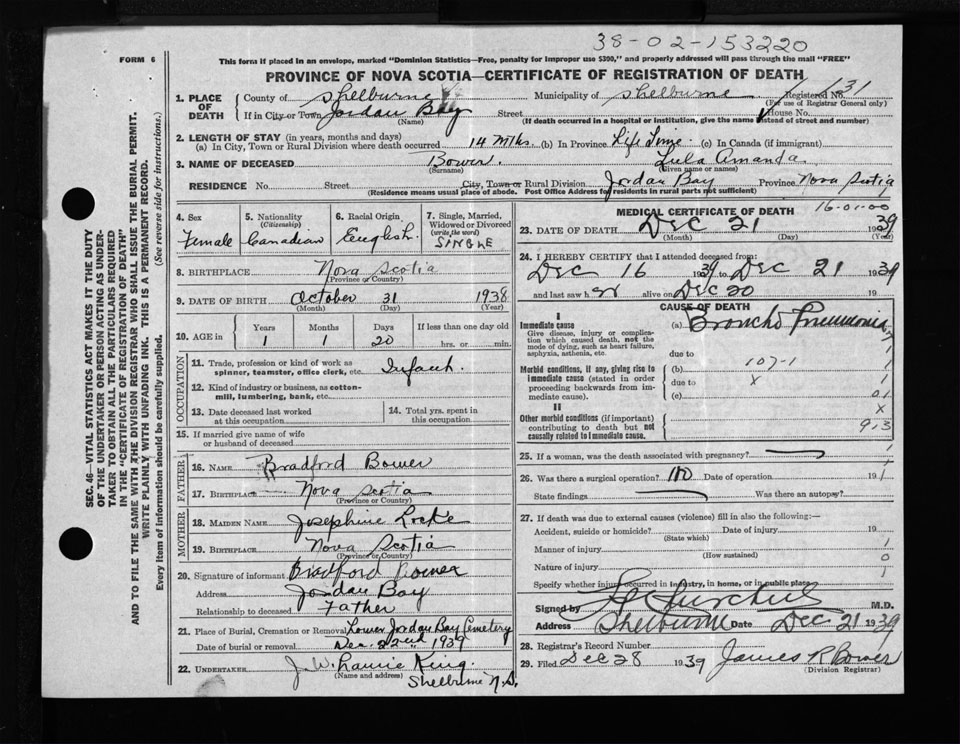 38-02-153220
FORM 6
This form if placed in an envelope, marked "Dominion Statistics—Free, penalty for improper use $300," and properly addressed will pass through the mail "FREE"
PROVINCE OF NOVA SCOTIA—CERTIFICATE OF REGISTRATION OF DEATH
SEC. 46—VITAL STATISTICS ACT MAKES IT THE DUTY
OF THE UNDERTAKER OR PERSON ACTING AS UNDER-
TAKER TO OBTAIN ALL THE PARTICULARS REQUIRED
IN THE "CERTIFICATE OF REGISTRATION OF DEATH"
AND TO FILE THE SAME WITH THE DIVISION REGISTRAR WHO SHALL ISSUE THE BURIAL PERMIT.
WRITE PLAINLY WITH UNFADING INK. THIS IS A PERMANENT RECORD.
Every item of information should be carefully supplied. (See reverse side for instructions.)
1. PLACE OF DEATH County of Shelburne Municipality of Shelburne Registered No. 131
(For use of Registrar General only)
If in City or Town Jordan Bay Street House No.
(Name) (If death occurred in a hospital or institution, give the name instead of street and number)
2. LENGTH OF STAY (in years, months and days)
(a) In City, Town or Rural Division where death occurred 14 Mths. (b) In Province Life Time (c) In Canada (if immigrant)
3. NAME OF DECEASED Bower. Lula Amanda
(Surname) (Given name or names)
RESIDENCE No. Street City, Town or Rural Division Jordan Bay Province Nova Scotia
(Residence means usual place of abode. Post Office Address for residents in rural parts not sufficient)
4. Sex Female
5. Nationality (Citizenship) Canadian
6. Racial Origin English
7. Single, Married, Widowed or Divorced (write the word) SINGLE
8. BIRTHPLACE Nova Scotia
(Province or Country)
9. DATE OF BIRTH October 31 1938
(Month) (Day) (Year)
10. AGE in Years Months Days If less than one day old
1 1 20 hrs. or min.
OCCUPATION
11. Trade, profession or kind of work as spinner, teamster, office clerk, etc. Infant.
12. Kind of industry or business, as cotton-mill, lumbering, bank, etc.
13. Date deceased last worked at this occupation
14. Total yrs. spent in this occupation
15. If married give name of wife or husband of deceased
FATHER
16. NAME Bradford Bower
17. BIRTHPLACE Nova Scotia
(Province or Country)
MOTHER
18. MAIDEN NAME Josephine Locke
19. BIRTHPLACE Nova Scotia
(Province or Country)
20. Signature of informant Bradford Bower
Address Jordan Bay
Relationship to deceased Father
21. Place of Burial, Cremation or Removal Lower Jordan Bay Cemetery
Date of burial or removal Dec. 22nd 1939
22. UNDERTAKER J. W. King.
(Name and address) Shelburne N.S.
MEDICAL CERTIFICATE OF DEATH 16-01-00
23. DATE OF DEATH Dec 21 1939
(Month) (Day) (Year)
24. I HEREBY CERTIFY that I attended deceased from:
Dec 16 1939 to Dec 21 1939
and last saw her alive on Dec 20 19
CAUSE OF DEATH
I
Immediate cause
Give disease, injury or complication which caused death, not the mode of dying, such as heart failure, asphyxia, asthenia, etc.
(a) Broncho Pneumonia
due to
Morbid conditions, if any, giving rise to immediate cause (stated in order proceeding backwards from immediate cause).
(b) 107-1
due to X
(c) 01
II
Other morbid conditions (if important) contributing to death but not causally related to immediate cause.
X
913
25. If a woman, was the death associated with pregnancy?
26. Was there a surgical operation? no Date of operation 19
State findings Was there an autopsy?
27. If death was due to external causes (violence) fill in also the following:—
Accident, suicide or homicide? Date of injury 19
(State which)
Manner of injury 1
(How sustained)
Nature of injury 0
Specify whether injury occurred in industry, in home, or in public place 1
Signed by M.D.
Address Shelburne Date Dec 21 1939
28. Registrar's Record Number
29. Filed Dec 28 1939 James R Bower
(Division Registrar)